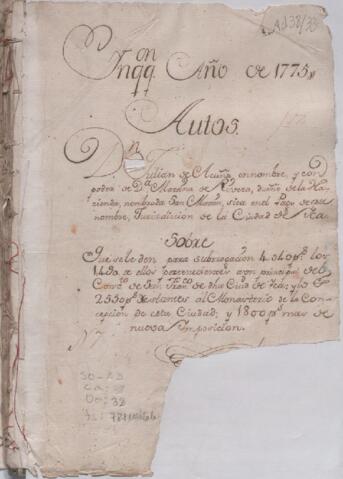 Ad 38/33
Ynqq.on Año de 1775,,
Autos.
Dn. Julian de Acuña, en nombre, y con
poder de Da. Mariana de Rivera, dueño de la Ha-
zienda, nombrada San Martin, sita en el Pago de este
nombre, Jurisdiccion de la Ciudad de Ica.
Sobre
Que se le den para subrogacion 4.040 ps. los
1490 a ellos pertenecientes con principal del
Convto. de San Franco. de dha Ciud. de Ica; y los
2550 ps. restantes al Monasterio de la Con-
cepcion de esta Ciudad; y 1800 ps. mas de
nueva Imposicion.
SO-AD
Ca:
Do: 33